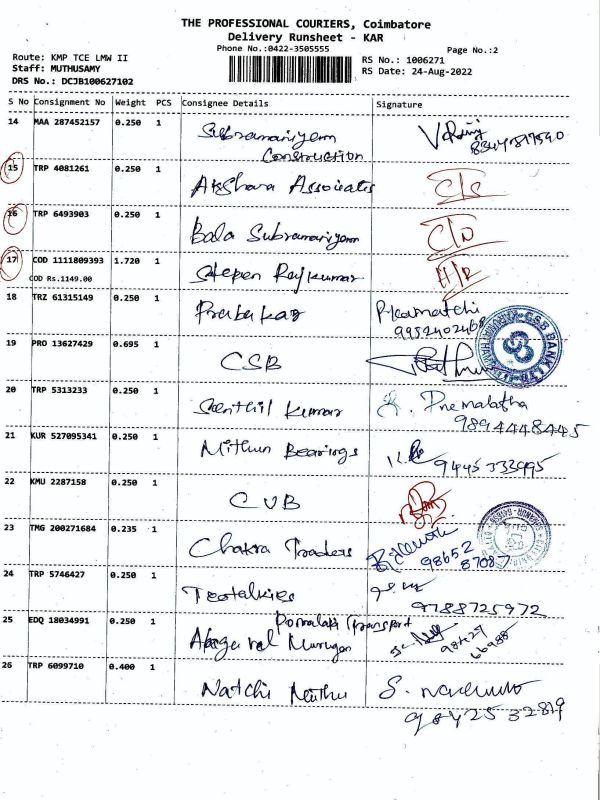 THE PROFESSIONAL COURIERS, Coimbatore
Delivery Runsheet - KAR
Phone No.:0422-3505555
Page No.:2
Route: KMP TCE LMW II
Staff: MUTHUSAMY
DRS No.: DCJB100627102
RS No.: 1006271
RS Date: 24-Aug-2022
S No Consignment No Weight PCS Consignee Details Signature
14 MAA 287452157 0.250 1 Subramaniyam
Construction
15 TRP 4081261 0.250 1 Akshara Associates C/S
16 TRP 6493903 0.250 1 Bala Subramaniyam C/N
17 COD 1111809393 1.720 1 Stepen Rajkumar H/R
COD Rs.1149.00
18 TRZ 61315149 0.250 1 Prabakar P.Kamatchi
9952402468
19 PRO 13627429 0.695 1 CSB
CSB BANK LTD
20 TRP 5313233 0.250 1 Senthil Kumar Premalatha
9894448445
21 KUR 527095341 0.250 1 Mithun Bearings 9445333995
22 KMU 2287158 0.250 1 CUB
23 TMG 200271684 0.235 1 Chakra Traders 98652
87087
24 TRP 5746427 0.250 1 9788725972
25 EDQ 18034991 0.250 1 Transport
Murugan 98427
66988
26 TRP 6099710 0.400 1 Natchi Muthu S.
9842532819